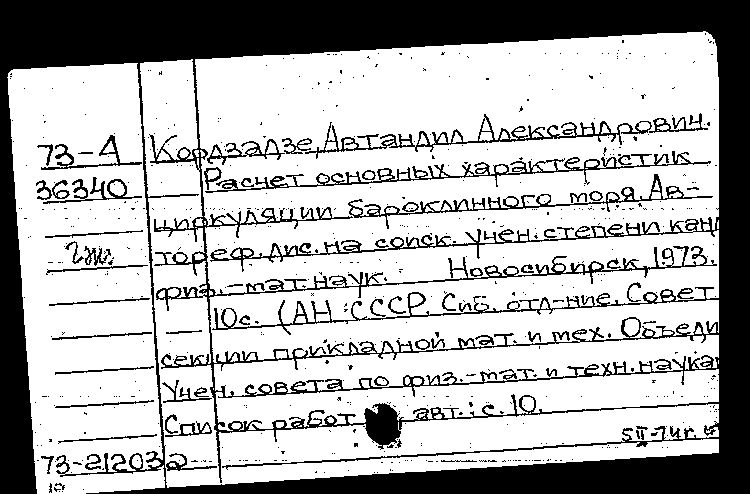 73-А Кордзадзе, Автандил Александрович.
36340 Расчет основных характеристик
циркуляции бароклинного моря. Ав-
тореф. дис. на соиск. учен. степени канд
физ.-мат. наук. Новосибирск, 1973.
10с. (АН СССР. Сиб. отд-ние. Совет
секции прикладной мат. и мех. Объеди
Учен. совета по физ.-мат. и техн. наука
Список работ авт.: с. 10.
5 II-74г.
73-21203